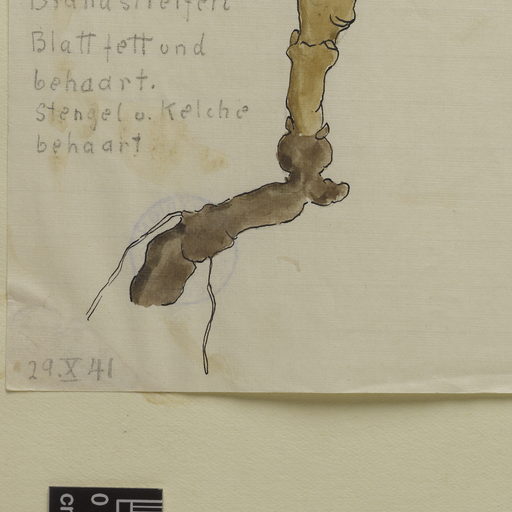 Brandstreifen
Blatt fett und
behaart.
Stengel u. Kelche
behaart
29.X 41
0